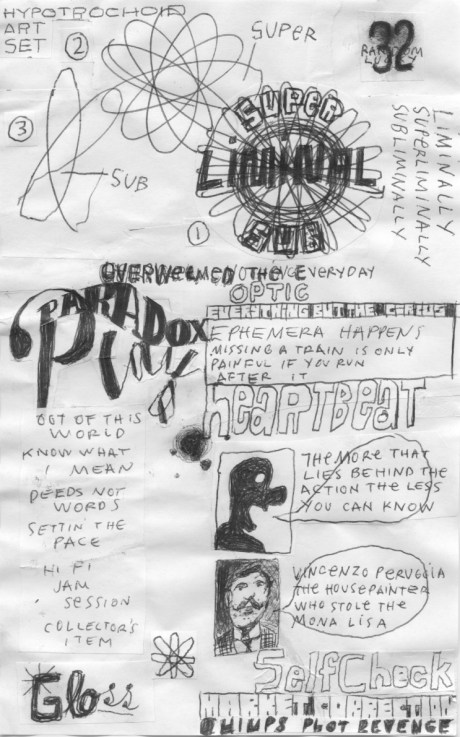 HYPOTROCHOID
ART
SET
②
SUPER
32
RANDOM
LUCKY
③
SUB
SUPER
LIMINAL
SUB
①
LIMINALLY
SUPERLIMINALLY
SUBLIMINALLY
OVERWELMED THE EVERYDAY
OPTIC
PARADOX
EVERYTHING BUT THE CIRCUS
EPHEMERA HAPPENS
MISSING A TRAIN IS ONLY
PAINFUL IF YOU RUN
AFTER IT
HEARTBEAT
OUT OF THIS
WORLD
KNOW WHAT
I MEAN
DEEDS NOT
WORDS
SETTIN' THE
PACE
HI FI
JAM
SESSION
COLLECTOR'S
ITEM
THE MORE THAT
LIES BEHIND THE
ACTION THE LESS
YOU CAN KNOW
VINCENZO PERUGGIA
THE HOUSEPAINTER
WHO STOLE THE
MONA LISA
Gloss
SelfCheck
MARKET CORRECTION
CHIMPS PLOT REVENGE